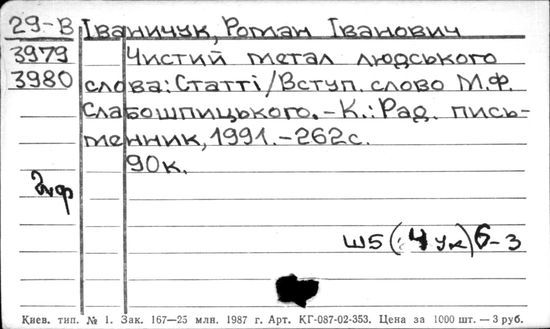 29-В Іваничук, Роман Іванович
3979 Чистий метал людського
3980 слова: Статті/Вступ. слово М.Ф.
Слабошпицького. – К.: Рад. пись-
менник, 1991. – 262 с.
90к.
Ш5(4Ук)6-3
Киев. тип. № 1. Зак. 167—25 млн. 1987 г. Арт. КГ-087-02-353. Цена за 1000 шт. — 3 руб.